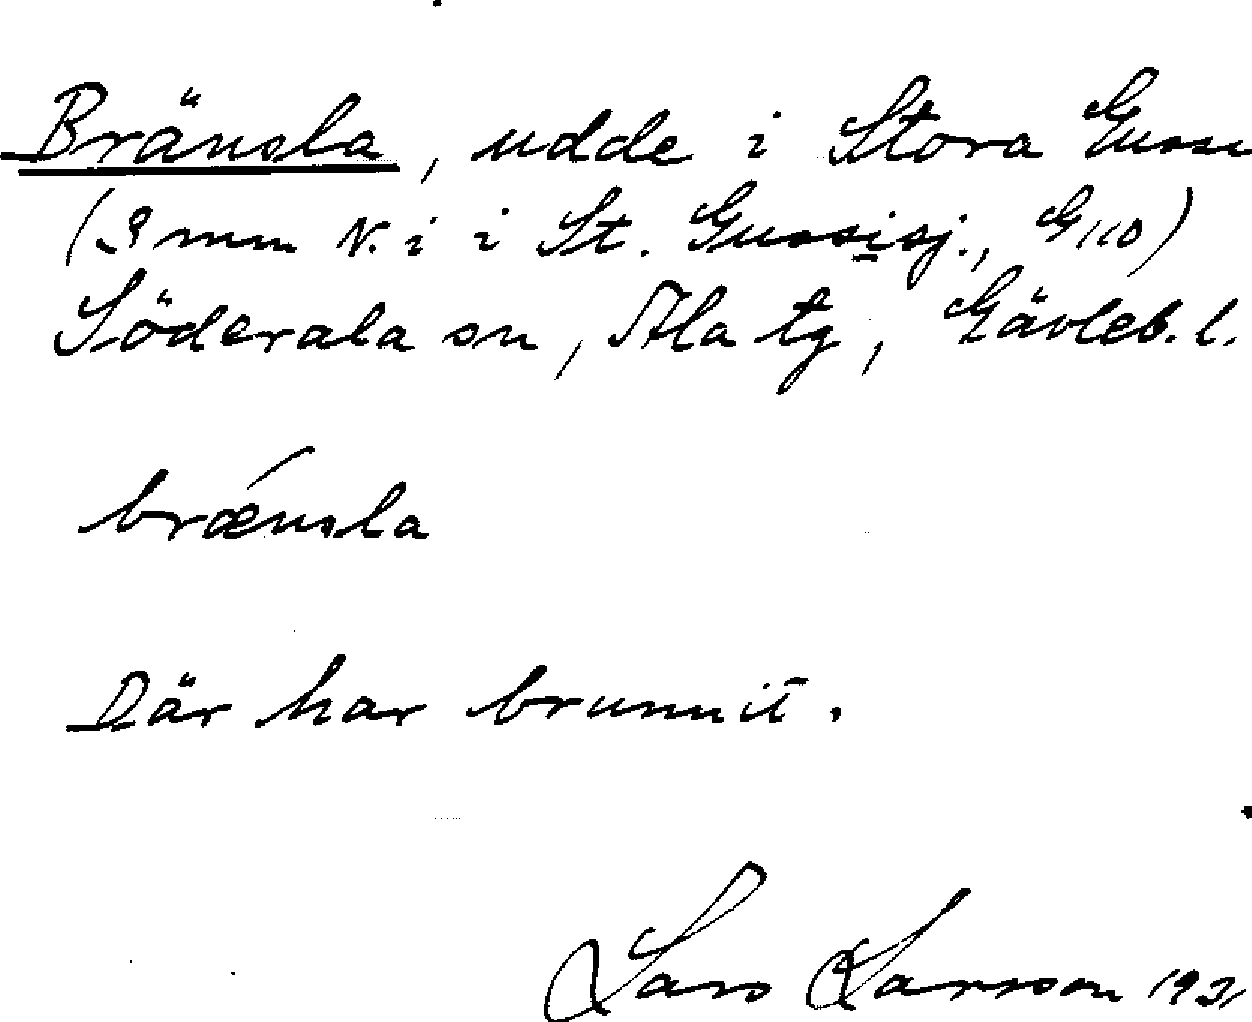 Bränsla, udde i Stora Gussi
(3 mm N. i i St. Gussisj., G 110)
Söderala sn, Ala tg, Gävleb. l.
brǽnsla
Där har brunnit.
Lars Larsson 1931